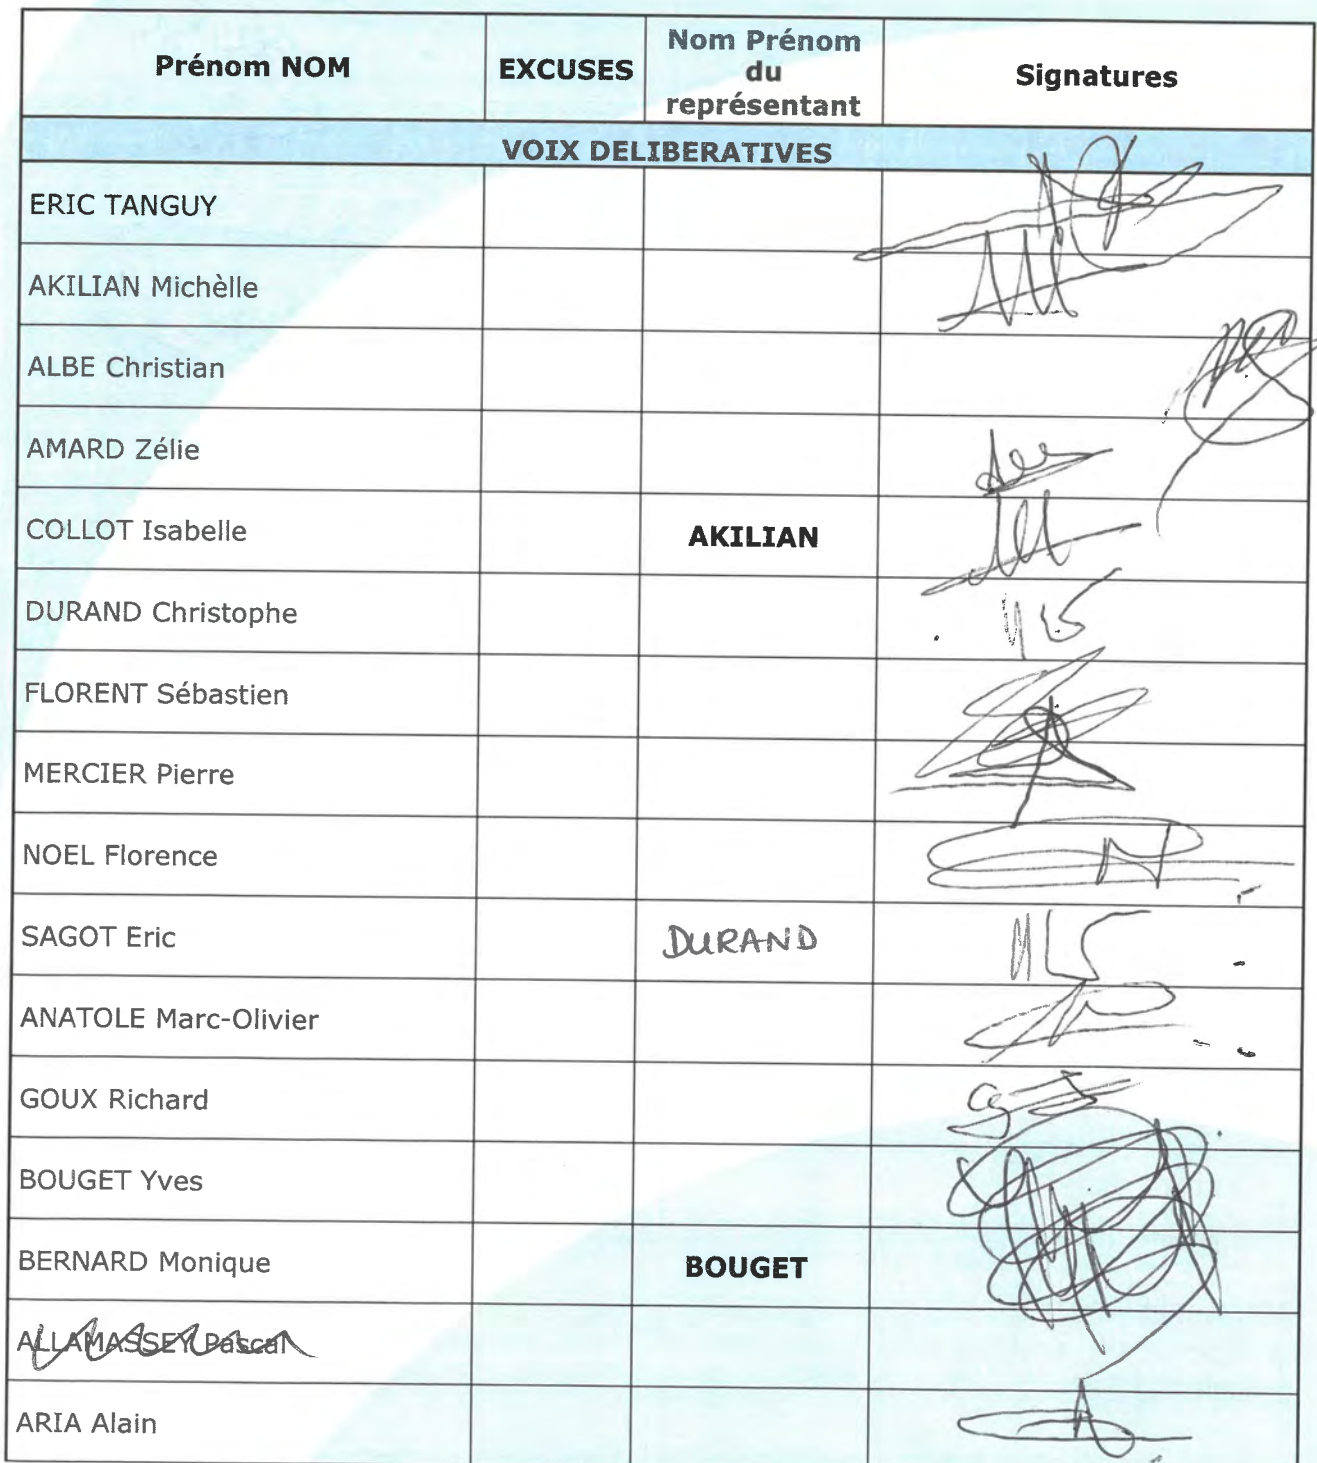 Prénom NOM EXCUSES Nom Prénom du représentant Signatures
VOIX DELIBERATIVES
ERIC TANGUY
AKILIAN Michèlle
ALBE Christian
AMARD Zélie
COLLOT Isabelle AKILIAN
DURAND Christophe
FLORENT Sébastien
MERCIER Pierre
NOEL Florence
SAGOT Eric DURAND
ANATOLE Marc-Olivier
GOUX Richard
BOUGET Yves
BERNARD Monique BOUGET
ALLAMASSEY Pascal
ARIA Alain